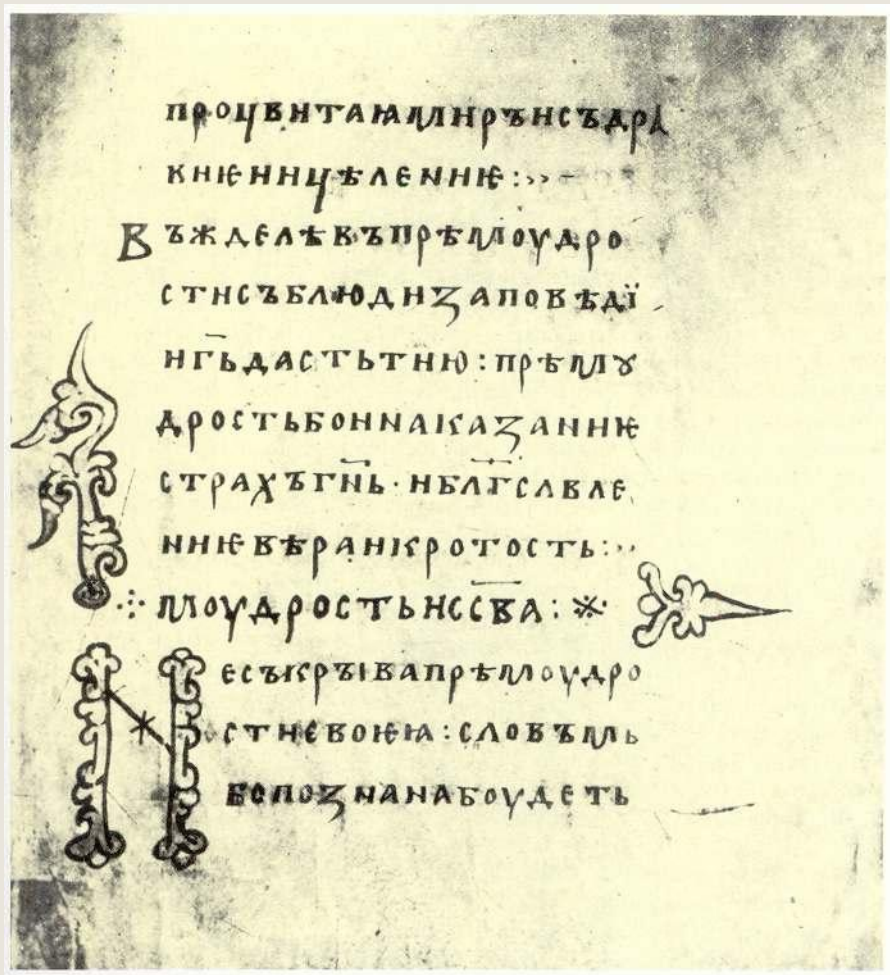 процвитаꙗмиръисъдра
виѥиицѣлениѥ:··–
Въжделѣвъпрѣмоудро
стисъблюдизаповѣдї
иг҃ьдастьтию:прѣмꙋ
дростьбоинаказаниѥ
страхъгн҃ь·иблг҃слвле
ниѥвѣраикротость:··
⁘моудростьисс҃ва:※
Несъкрꙑвапрѣмоудро
стисвоѥꙗ:словъмь
бопознанабоудеть